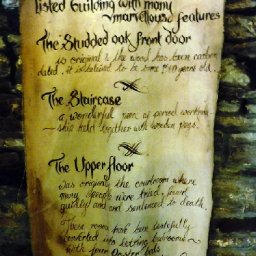 listed building with many
marvellous features
The Studded oak front door
is original & the wood has been carbon
dated. it is believed to be some old.
The Staircase
a wonderful of period workman
ship held together with wooden pegs.
The Upper floor
was originally the courtroom where
many people were tried, found
guilty and sentenced to death.
These rooms have been tastefully
converted into bedrooms
with four Poster beds